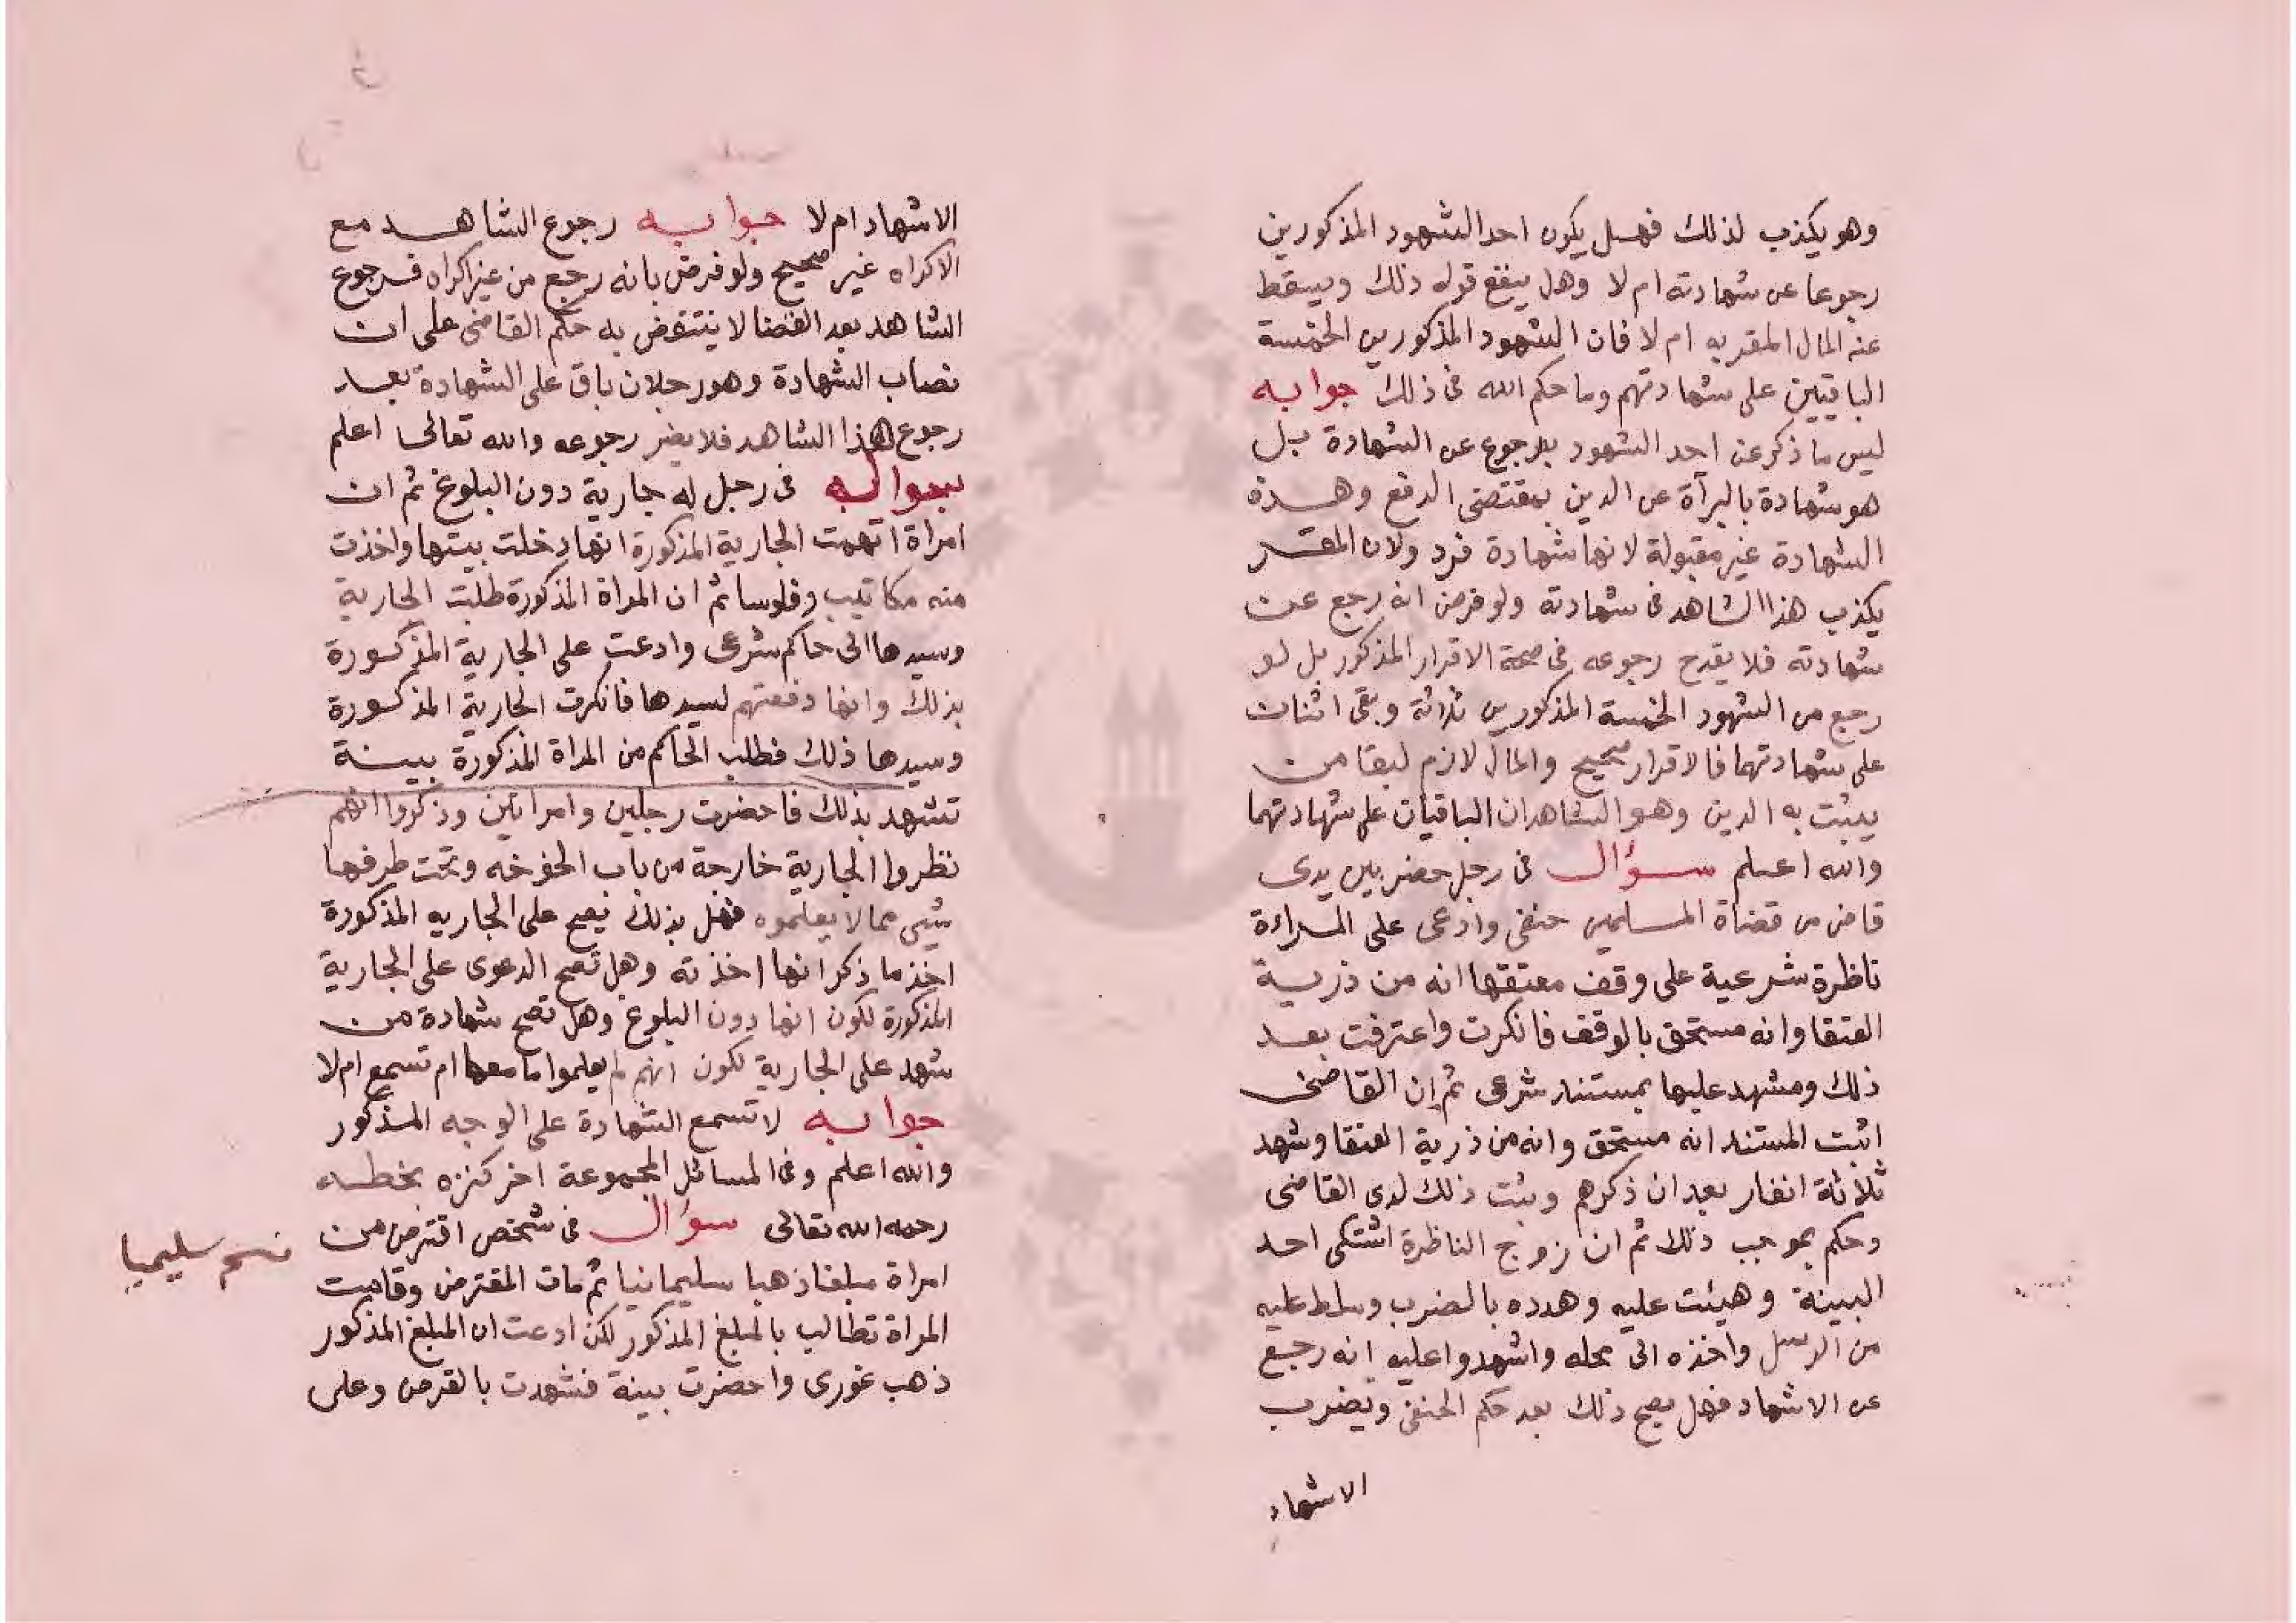 وهو يكذب لذلك فهل يكون احد الشهود المذكورين
رجوعا عن شهادته ام لا وهل ينفع قوله ذلك ويسقط
عنه المال المقر به ام لا فان الشهود المذكورين الخمسة
الباقيين على شهادتهم وما حكم الله فى ذلك جوابه
ليس ما ذكر عن احد الشهود برجوع عن الشهادة بل
هو شهادة بالبرآة عن الدين بمقتضى الدفع وهذه
الشهادة غير مقبولة لانها شهادة فرد ولان المقر
يكذب هذا الشاهد فى شهادته ولو فرض انه رجع عن
شهادته فلا يقدح رجوعه فى صحة الاقرار المذكور بل لو
رجع من الشهود الخمسة المذكورين ثلاثة وبقى اثنان
على شهادتهما فالاقرار صحيح والمال لازم لبقا من
يثبت به الدين وهو الشاهدان الباقيان على شهادتهما
والله اعلم سؤال فى رجل حضر بين يدى
قاض من قضاة المسلمين حنفى وادعى على المراءة
ناظرة شرعية على وقف معتقها انه من ذرية
العتقا وانه مستحق بالوقف فانكرت واعترفت بعد
ذلك ومشهد عليها بمستند شرعى ثم ان القاضى
اثبت المستند انه مستحق وانه من ذرية العتقا وشهد
ثلاثة انفار بعد ان ذكرهم وثبت ذلك لدى القاضى
وحكم بموجب ذلك ثم ان زوج الناظرة اشتكى احد
البينة وهيئت عليه وهدده بالضرب وسلط عليه
من الرسل واخذه الى محله واشهدوا عليه انه رجع
عن الاشهاد فهل يصح ذلك بعد حكم الحنفى ويضرب
الاشهاد
الاشهاد ام لا جوابه رجوع الشاهد مع
الاكراه غير صحيح ولو فرض بانه رجع من غير اكراه فرجوع
الشاهد بعد القضا لا ينتقض به حكم القاضى على ان
نصاب الشهادة وهو رجلان باق على الشهادة بعد
رجوع هذا الشاهد فلا يضر رجوعه والله تعالى اعلم
سوال فى رجل له جارية دون البلوغ ثم ان
امراة اتهمت الجارية المذكورة انها دخلت بيتها واخذت
منه مكاتيب وفلوسا ثم ان المراة المذكورة طلبت الجارية
وسيدها الى حاكم شرعى وادعت على الجارية المذكورة
بذلك وانها دفعتهم لسيدها فانكرت الجارية المذكورة
وسيدها ذلك فطلب الحاكم من المراة المذكورة بينة
تشهد بذلك فاحضرت رجلين وامراتين وذكروا انهم
نظروا الجارية خارجة من باب الخوخه وتحت طرفها
شيى مما لا يعلموه فهل بذلك يصح على الجاريه المذكورة
اخذ ما ذكر انها اخذته وهل تصح الدعوى على الجارية
المذكورة لكون انها دون البلوغ وهل تصح شهادة من
شهد على الجارية لكون انهم لم يعلموا ما معها ام تسمع ام لا
جوابه لا تسمع الشهادة على الوجه المذكور
والله اعلم وفى المسائل المجموعة اخر كنزه بخطه
رحمه الله تعالى سؤال فى شخص اقترض من
امراة مبلغا ذهبا سليمانيا ثم مات المقترض وقامت
المراة تطالب بالمبلغ المذكور لكن ادعت ان المبلغ المذكور
ذهب غورى واحضرت بينة فشهدت بالقرض وعلى